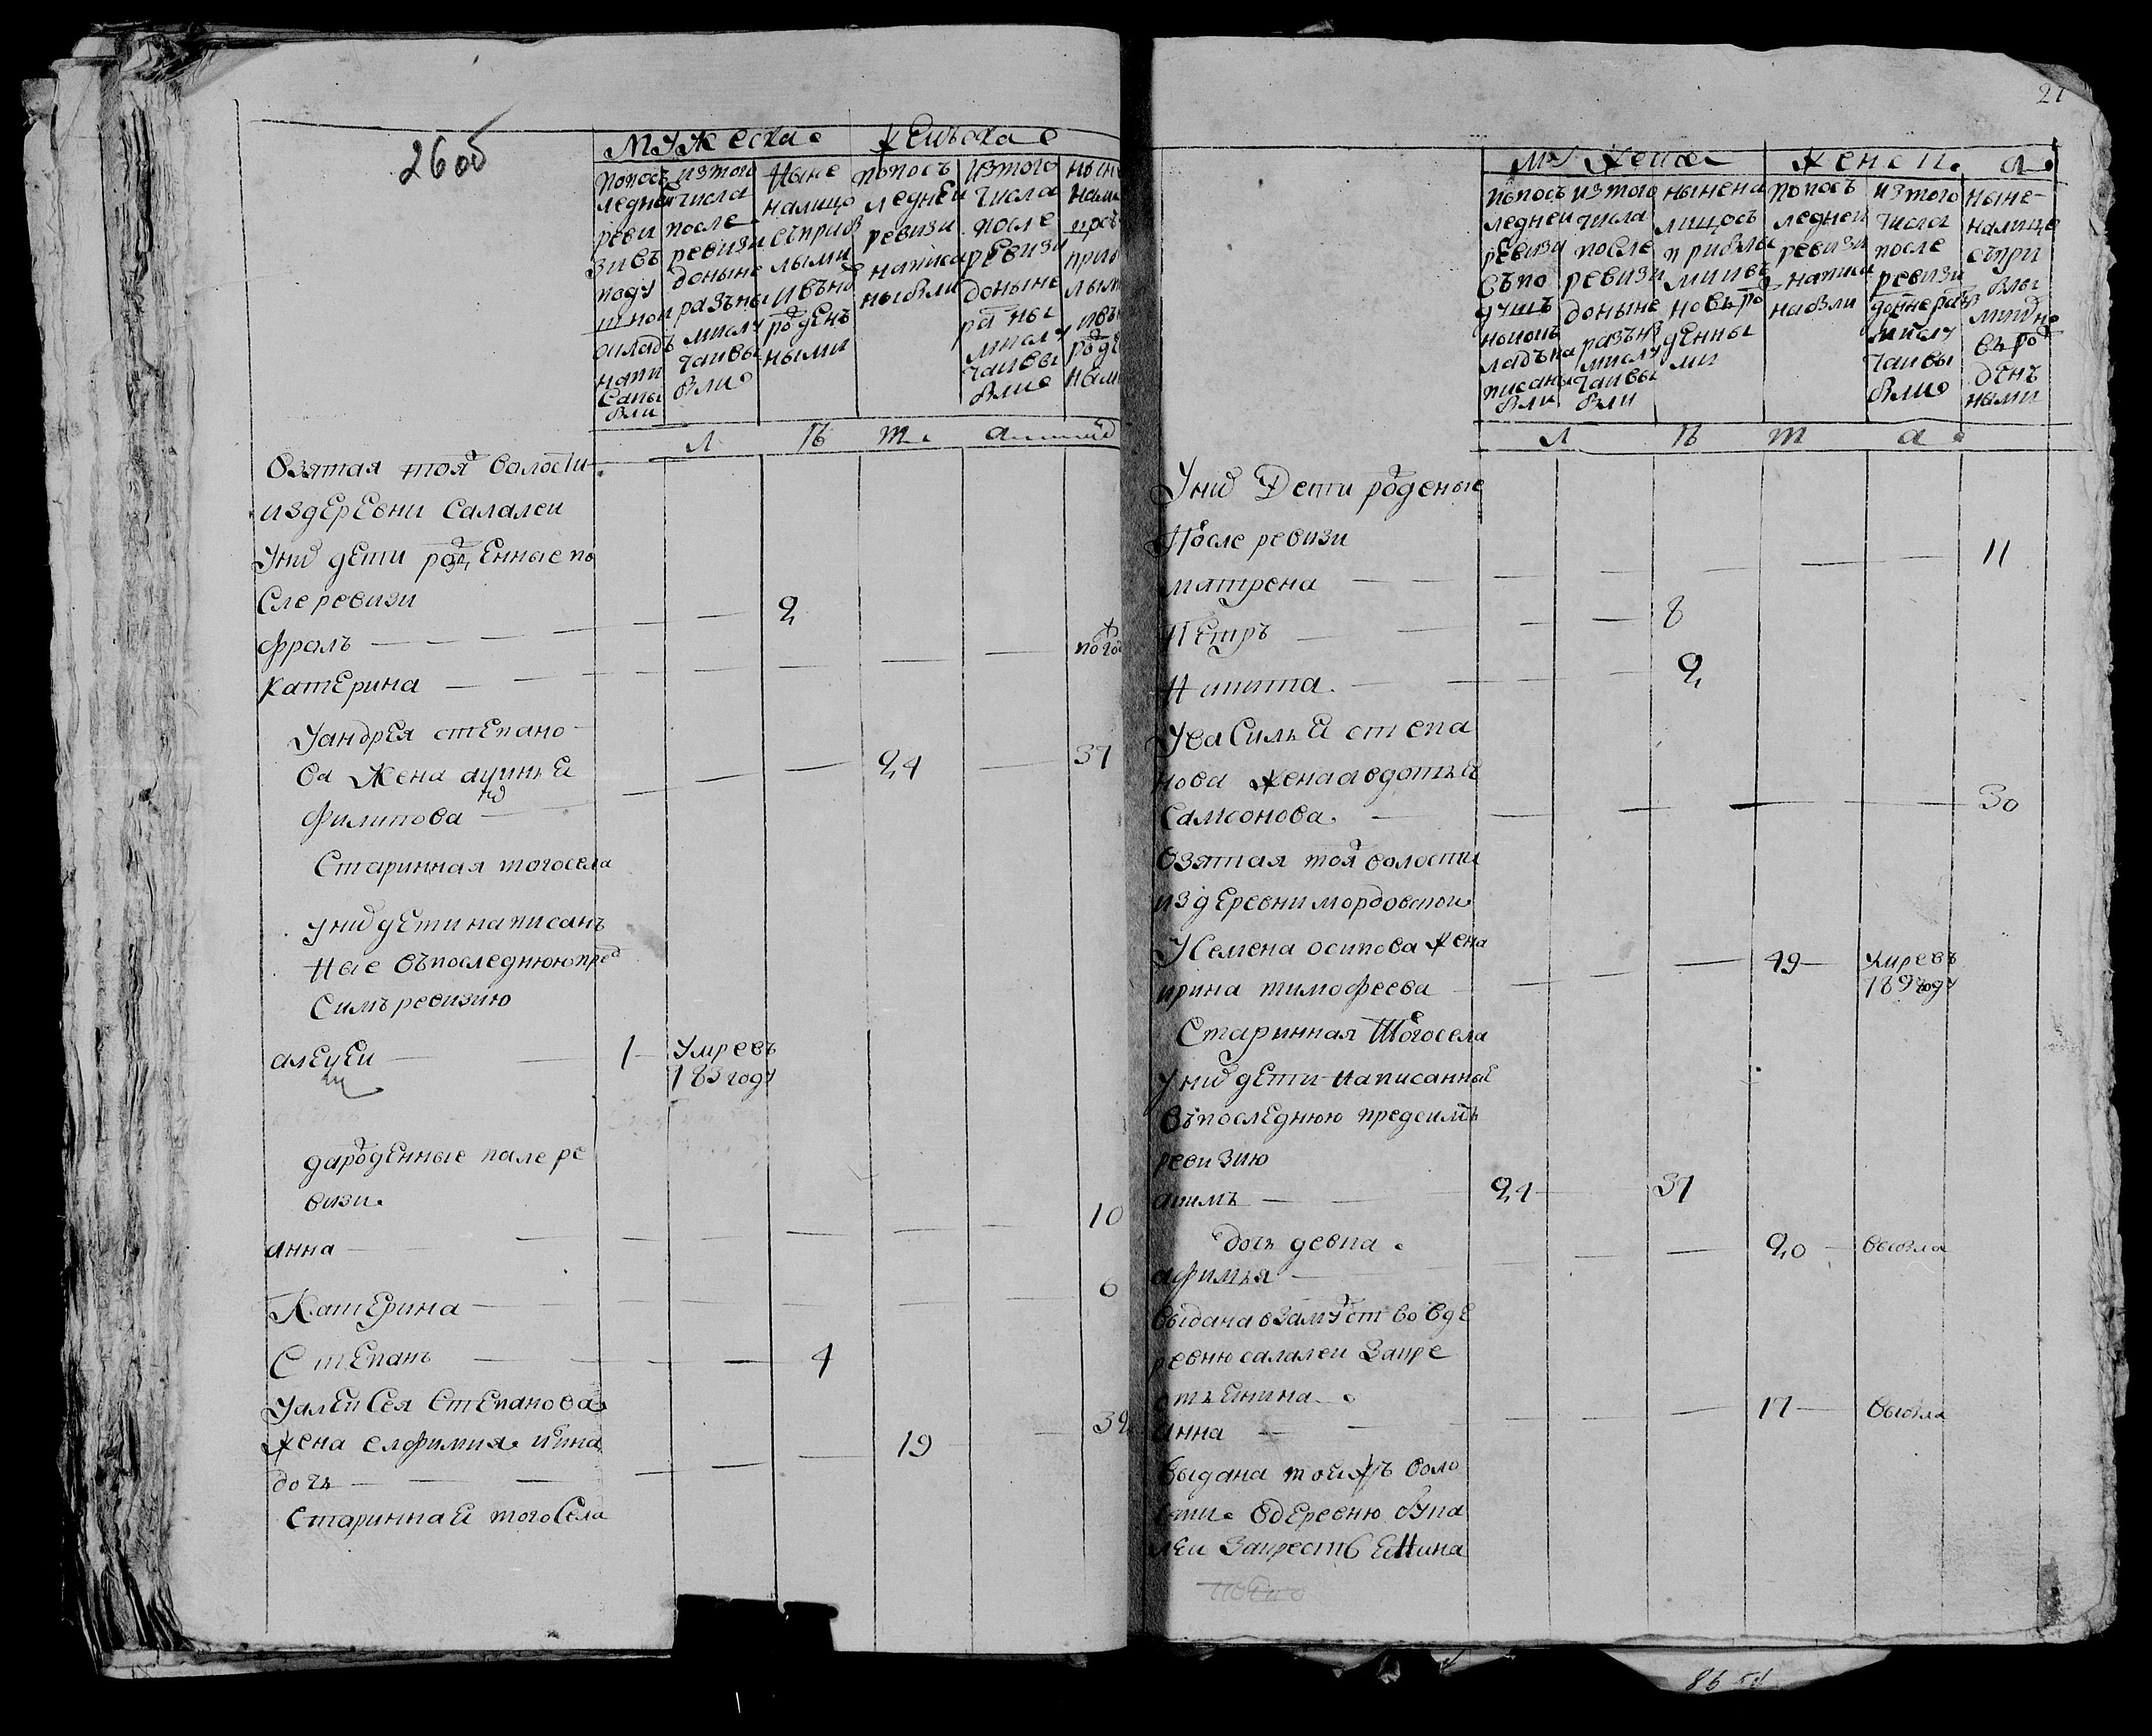 26об
Мужеска
женьска
попось
ледней
реви
зивъ
поду
шной
окладъ
напи
саны
бли
изтого
числа
после
ревизи
доныне
разъны
мислу
чаивы
бли
Ныне
налицо
съприб
лыми
ивъно
роденъ
ными
попосъ
ледней
ревизи
написа
ныбли
изтого
числа
после
ревизи
доныне
раны
мислу
чаивы
бли
лѣта
взятая тоя волости
издеревни Салалеи
унид дети роденные по
Сле ревизи
фролъ 2
пого
катерина
Уандрея степано
ва Жена
филипова 24 37
Старинная тогосела
унид дети написанъ
Ные въпоследнюю пред
Симъ ревизию
алексей 1 Умре въ
183 году
дароденные пасле ре
визи
анна 10
Катерина 6
Степанъ 4
Уалексея Степанова
жена елфимия
дочь 19 39
Стариннаи того Села
27
Мужеска
женска
попосъ
ледней
ревизи
съпо
душъ
нопок
ладъна
писаны
бли
изтого
числа
после
ревизи
доныне
разънѣ
мислу
чаивы
бли
нынена
лицось
прибылы
мино
въро
денны
ми
попосъ
ледней
ревизи
написа
набли
изтого
числа
после
ревизи
доныне разъ
мислу
чаивы
бли
ныне
налице
съпри
былы
мино
въ род
дѣнъ
ными
лѣта
Унид Дети роденые
После ревизи
матрена 11
Петръ 8
Никита 2
Увасилья степа
нова жена авдотья
Самсонова 30
взятая тоя волости
издеревни мордовской
Усемена осипова жена
ирина тимофеева 49 Умре въ
189 году
Старинная Тогосела
унид дети написанные
въпоследнюю предсимъ
ревизию
акимъ 24 37
дочь девка
афимья 20 выбыла
выдана взамуство вде
ревню салалеи Закре
стьянина
анна 17 выбыла
выдана тойжъ воло
сти вдеревню
леи Закрестьянина